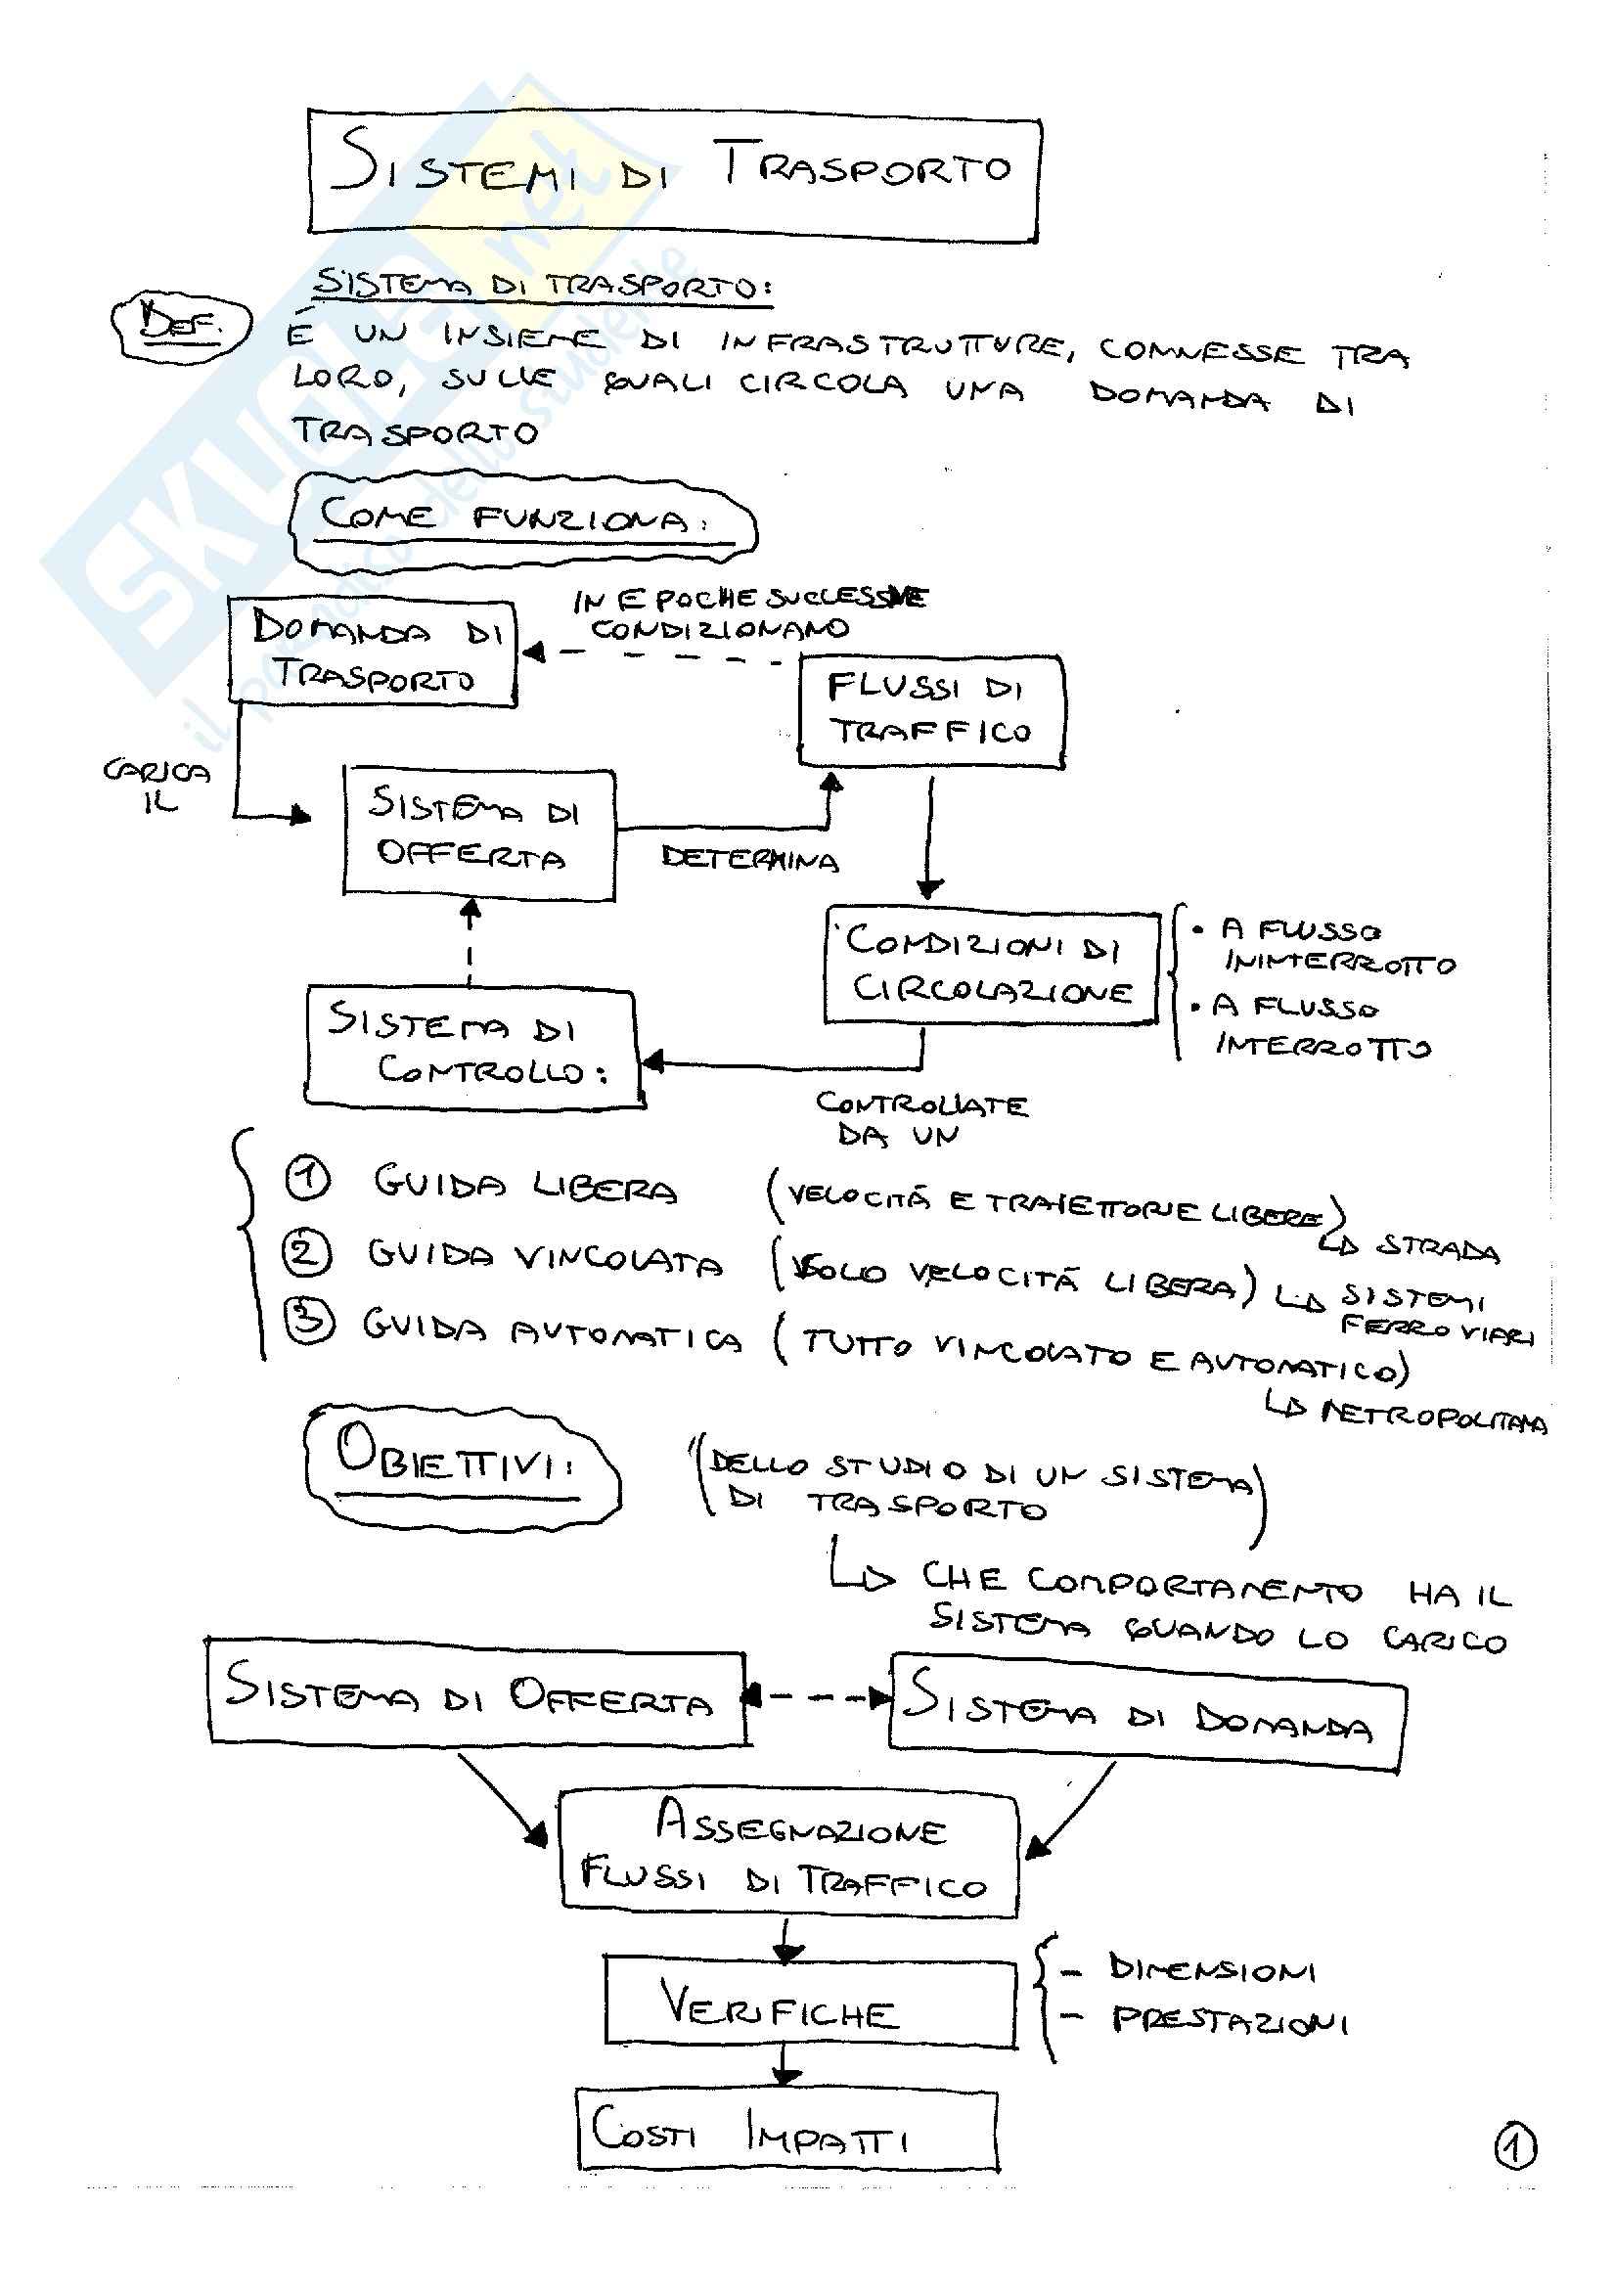 SISTEMI DI TRASPORTO
SISTEMA DI TRASPORTO:
DEF.
É UN INSIEME DI INFRASTRUTTURE, CONNESSE TRA
LORO, SULLE QUALI CIRCOLA UNA DOMANDA DI
TRASPORTO
COME FUNZIONA:
IN EPOCHE SUCCESSIVE
CONDIZIONANO
DOMANDA DI
TRASPORTO
FLUSSI DI
TRAFFICO
CARICA
IL
SISTEMA DI
OFFERTA
DETERMINA
CONDIZIONI DI
CIRCOLAZIONE
• A FLUSSO
ININTERROTTO
• A FLUSSO
INTERROTTO
SISTEMA DI
CONTROLLO:
CONTROLLATE
DA UN
1 GUIDA LIBERA (VELOCITÁ E TRAIETTORIE LIBERE)
STRADA
2 GUIDA VINCOLATA (SOLO VELOCITÁ LIBERA) SISTEMI
FERROVIARI
3 GUIDA AUTOMATICA (TUTTO VINCOLATO E AUTOMATICO)
METROPOLITANA
OBIETTIVI: (DELLO STUDIO DI UN SISTEMA
DI TRASPORTO)
CHE COMPORTAMENTO HA IL
SISTEMA QUANDO LO CARICO
SISTEMA DI OFFERTA
SISTEMA DI DOMANDA
ASSEGNAZIONE
FLUSSI DI TRAFFICO
VERIFICHE
- DIMENSIONI
- PRESTAZIONI
COSTI IMPATTI
1
SKUOLA.net
il portale dello studente